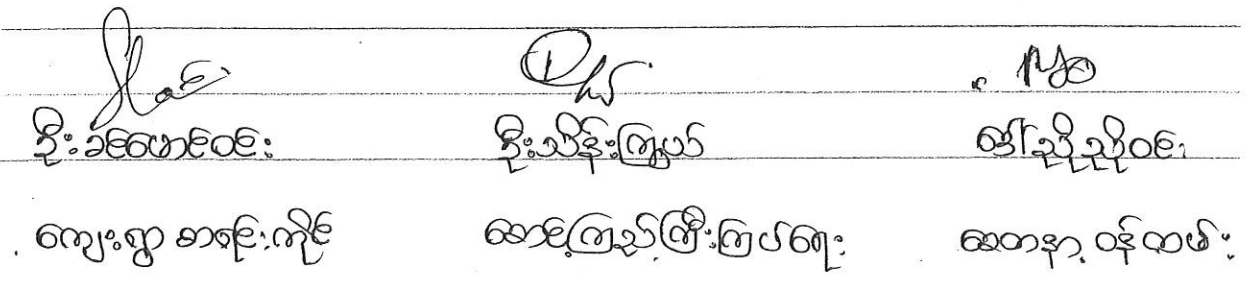 ဦးခင်မောင်ဝင်း ဦးသိန်းကြွယ် ဒေါ်ညိုညိုဝင်း
ကျေးရွာ စာရင်းကိုင် စောင့်ကြည့်ကြီးကြပ်ရေး စေတနာ့ ဝန်ထမ်း